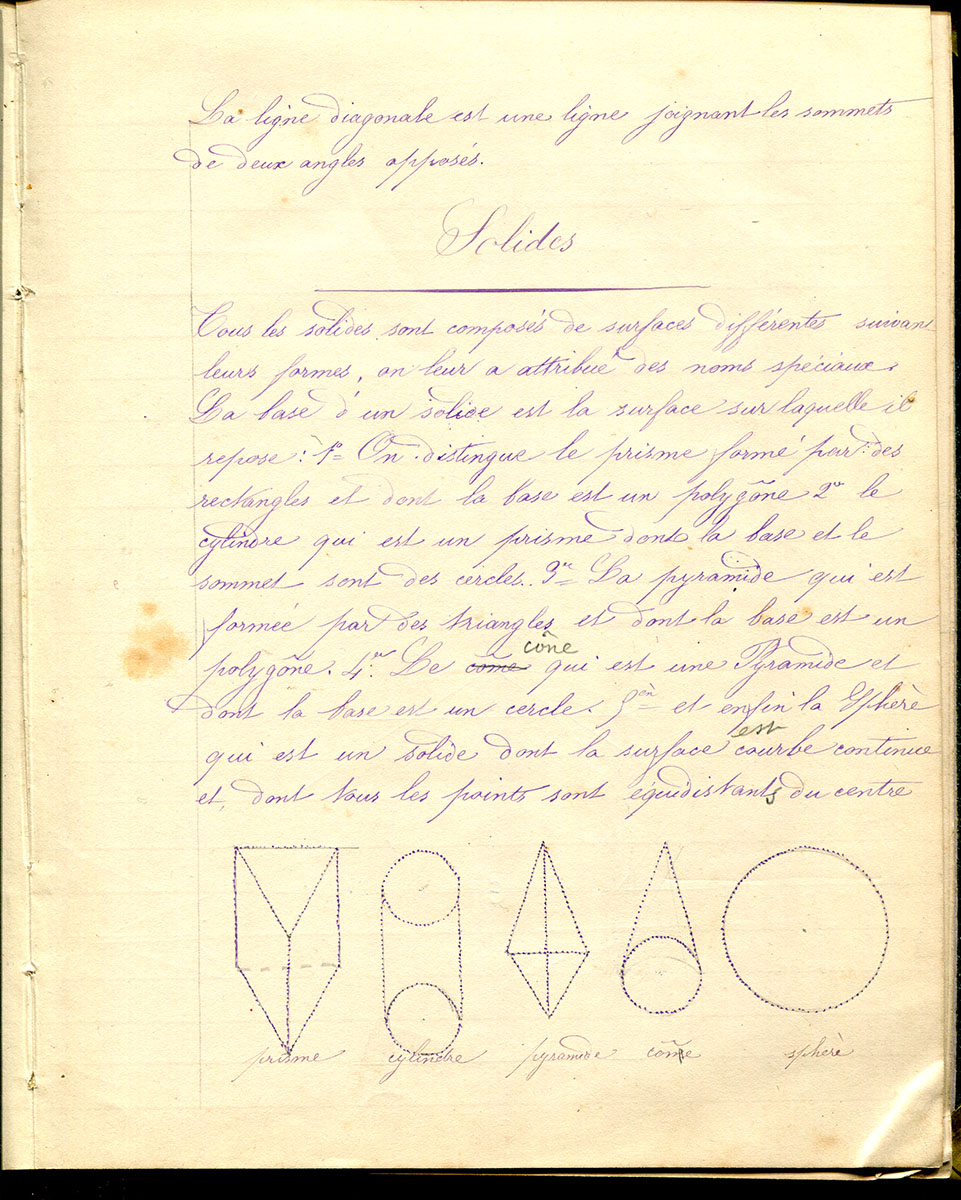 La ligne diagonale est une ligne joignant les sommets
de deux angles opposés.
Solides
Tous les solides sont composés de surfaces différentes suivant
leurs formes, on leur a attribué des noms spéciaux.
La base d'un solide est la surface sur laquelle il
repose : 1º On distingue le prisme formé par des
rectangles et dont la base est un polygône 2º le
cylindre qui est un prisme dont la base et le
sommet sont des cercles. 3º La pyramide qui est
formée par des triangles et dont la base est un
cône
polygône. 4º Le côme qui est une Pyramide et
dont la base est un cercle. 5èn et enfin la Sphèrè
est
qui est un solide dont la surface courbe continue
et dont tous les points sont équidistants du centre
prisme cylindre pyramide cône sphèrè